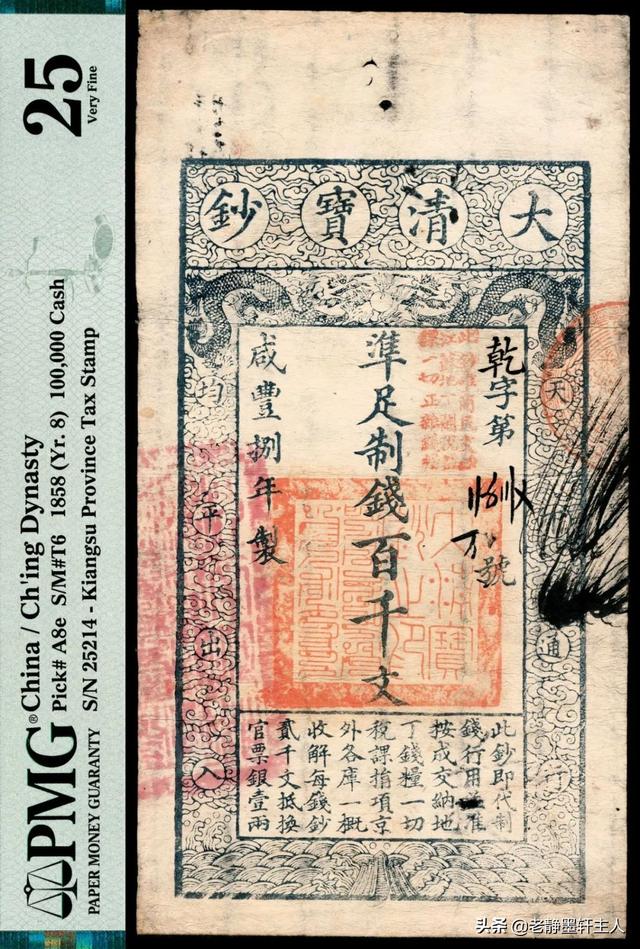 PMG®
PAPER MONEY GUARANTY
China / Ch'ing Dynasty
Pick# A8e S/M#T6 1858 (Yr. 8) 100,000 Cash
S/N 25214 - Kiangsu Province Tax Stamp
25
Very Fine
大清寶鈔
天
通行
乾字第
號
準足制錢百千文
咸豐捌年製
均平出入
此鈔即代制
錢行用並准
按成交納地
丁錢糧一切
稅課捐項京
外各庫一概
收解每錢鈔
貳千文抵換
官票銀壹兩
头条 @老静墨轩主人